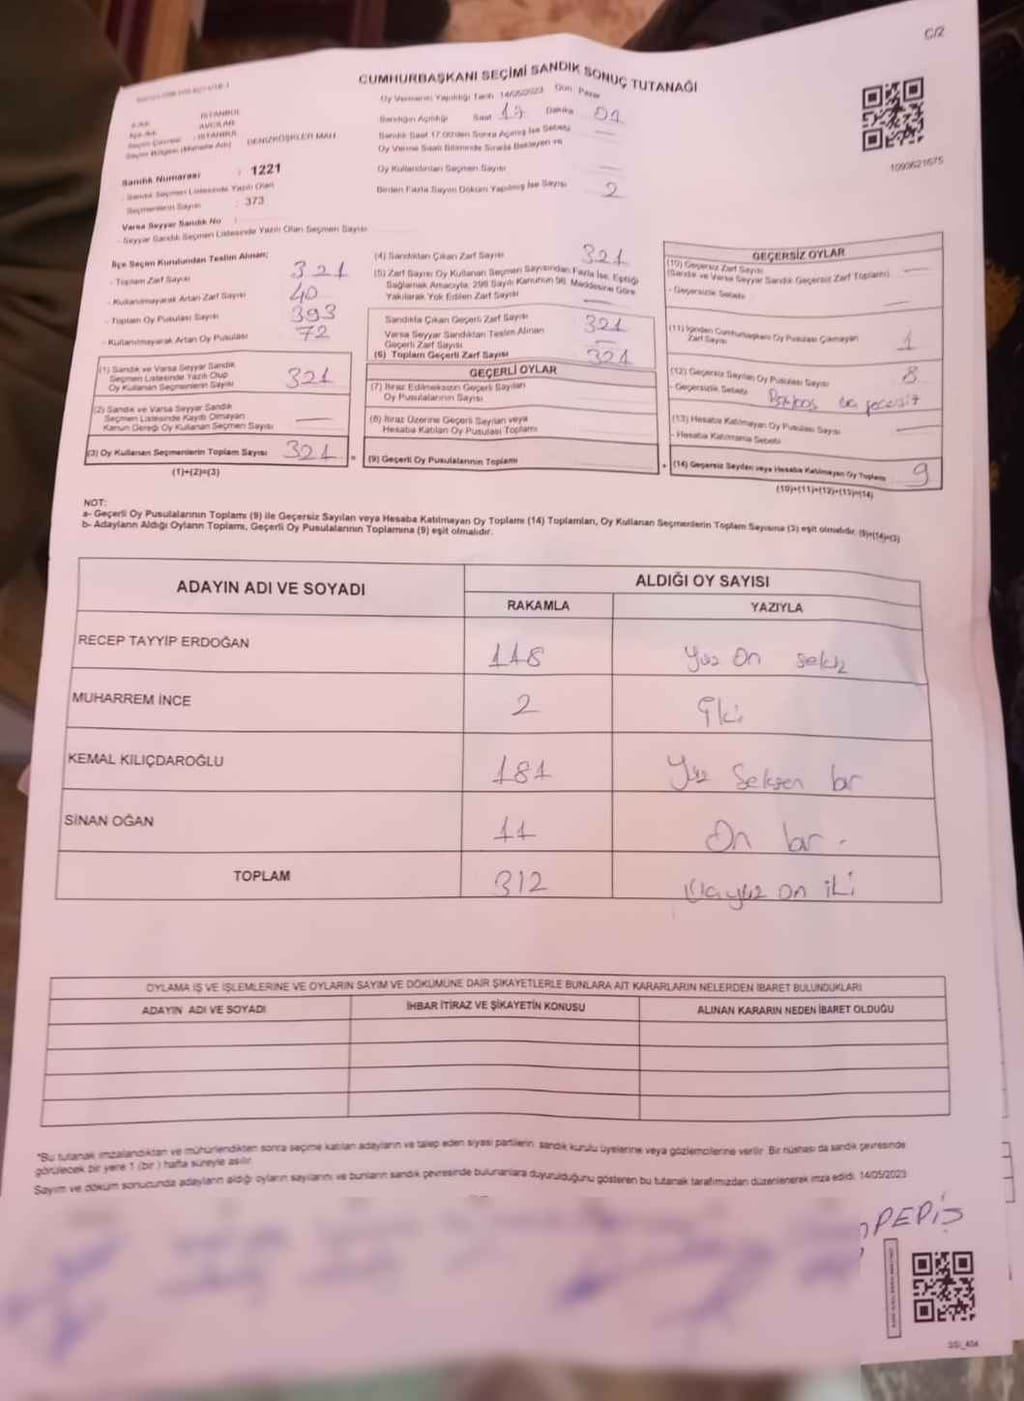 C/2
CUMHURBAŞKANI SEÇİMİ SANDIK SONUÇ TUTANAĞI
Oy Vermenin Yapıldığı Tarih 14/05/2023 Gün Pazar
Sandığın Açıldığı Saat 17 Dakika 01
Sandık Saat 17.00'den Sonra Açılmış İse Sebebi
Oy Verme Saati Bitiminde Sırada Bekleyen ve
Oy Kullandırılan Seçmen Sayısı
Birden Fazla Sayım Döküm Yapılmış İse Sayısı 2
1093621675
İSTANBUL
AVCILAR
İSTANBUL
DENİZKÖŞKLER MAH.
Sandık Numarası : 1221
- Sandık Seçmen Listesinde Yazılı Olan
Seçmenlerin Sayısı : 373
Varsa Seyyar Sandık No :
- Seyyar Sandık Seçmen Listesinde Yazılı Olan Seçmen Sayısı
İlçe Seçim Kurulundan Teslim Alınan;
- Toplam Zarf Sayısı 321
- Kullanılmayarak Artan Zarf Sayısı 40
- Toplam Oy Pusulası Sayısı 393
- Kullanılmayarak Artan Oy Pusulası 72
(1) Sandık ve Varsa Seyyar Sandık
Seçmen Listesinde Yazılı Olup
Oy Kullanan Seçmenlerin Sayısı 321
(2) Sandık ve Varsa Seyyar Sandık
Seçmen Listesinde Kayıtlı Olmayan
Kanun Gereği Oy Kullanan Seçmen Sayısı —
(3) Oy Kullanan Seçmenlerin Toplam Sayısı 321
(1)+(2)=(3)
(4) Sandıktan Çıkan Zarf Sayısı 321
(5) Zarf Sayısı Oy Kullanan Seçmen Sayısından Fazla İse, Eşitliği
Sağlamak Amacıyla, 298 Sayılı Kanunun 98. Maddesine Göre
Yakılarak Yok Edilen Zarf Sayısı —
Sandıkta Çıkan Geçerli Zarf Sayısı 321
Varsa Seyyar Sandıktan Teslim Alınan
Geçerli Zarf Sayısı —
(6) Toplam Geçerli Zarf Sayısı 321
GEÇERLİ OYLAR
(7) İtiraz Edilmeksizin Geçerli Sayılan
Oy Pusulasının Sayısı
(8) İtiraz Üzerine Geçerli Sayılan veya
Hesaba Katılan Oy Pusulası Toplamı
= (9) Geçerli Oy Pusulalarının Toplamı
GEÇERSİZ OYLAR
(10) Geçersiz Zarf Sayısı
(Sandık ve Varsa Seyyar Sandık Geçersiz Zarf Toplamı) —
- Geçersizlik Sebebi —
(11) İçinden Cumhurbaşkanı Oy Pusulası Çıkmayan
Zarf Sayısı 1
(12) Geçersiz Sayılan Oy Pusulası Sayısı 8
- Geçersizlik Sebebi
(13) Hesaba Katılmayan Oy Pusulası Sayısı —
- Hesaba Katılmama Sebebi
+ (14) Geçersiz Sayılan veya Hesaba Katılmayan Oy Toplamı 9
(10)+(11)+(12)+(13)=(14)
NOT:
a- Geçerli Oy Pusulalarının Toplamı (9) ile Geçersiz Sayılan veya Hesaba Katılmayan Oy Toplamı (14) Toplamları, Oy Kullanan Seçmenlerin Toplam Sayısına (3) eşit olmalıdır. (9)+(14)=(3)
b- Adayların Aldığı Oyların Toplamı, Geçerli Oy Pusulalarının Toplamına (9) eşit olmalıdır.
ADAYIN ADI VE SOYADI
ALDIĞI OY SAYISI
RAKAMLA YAZIYLA
RECEP TAYYİP ERDOĞAN 118 Yüz On sekiz
MUHARREM İNCE 2 İki
KEMAL KILIÇDAROĞLU 181 Yüz Seksen bir
SİNAN OĞAN 11 On bir -
TOPLAM 312 üçyüz on iki
OYLAMA İŞ VE İŞLEMLERİNE VE OYLARIN SAYIM VE DÖKÜMÜNE DAİR ŞİKAYETLERLE BUNLARA AİT KARARLARIN NELERDEN İBARET BULUNDUKLARI
ADAYIN ADI VE SOYADI İHBAR İTİRAZ VE ŞİKAYETİN KONUSU ALINAN KARARIN NEDEN İBARET OLDUĞU
"Bu tutanak imzalandıktan ve mühürlendikten sonra seçime katılan adayların ve talep eden siyasi partilerin sandık kurulu üyelerine veya gözlemcilerine verilir. Bir nüshası da sandık çevresinde
görülecek bir yere 1 (bir) hafta süreyle asılır.
Sayım ve döküm sonucunda adayların aldığı oyların sayılarını ve bunların sandık çevresinde bulunanlara duyurulduğunu gösteren bu tutanak tarafımızdan düzenlenerek imza edildi. 14/05/2023